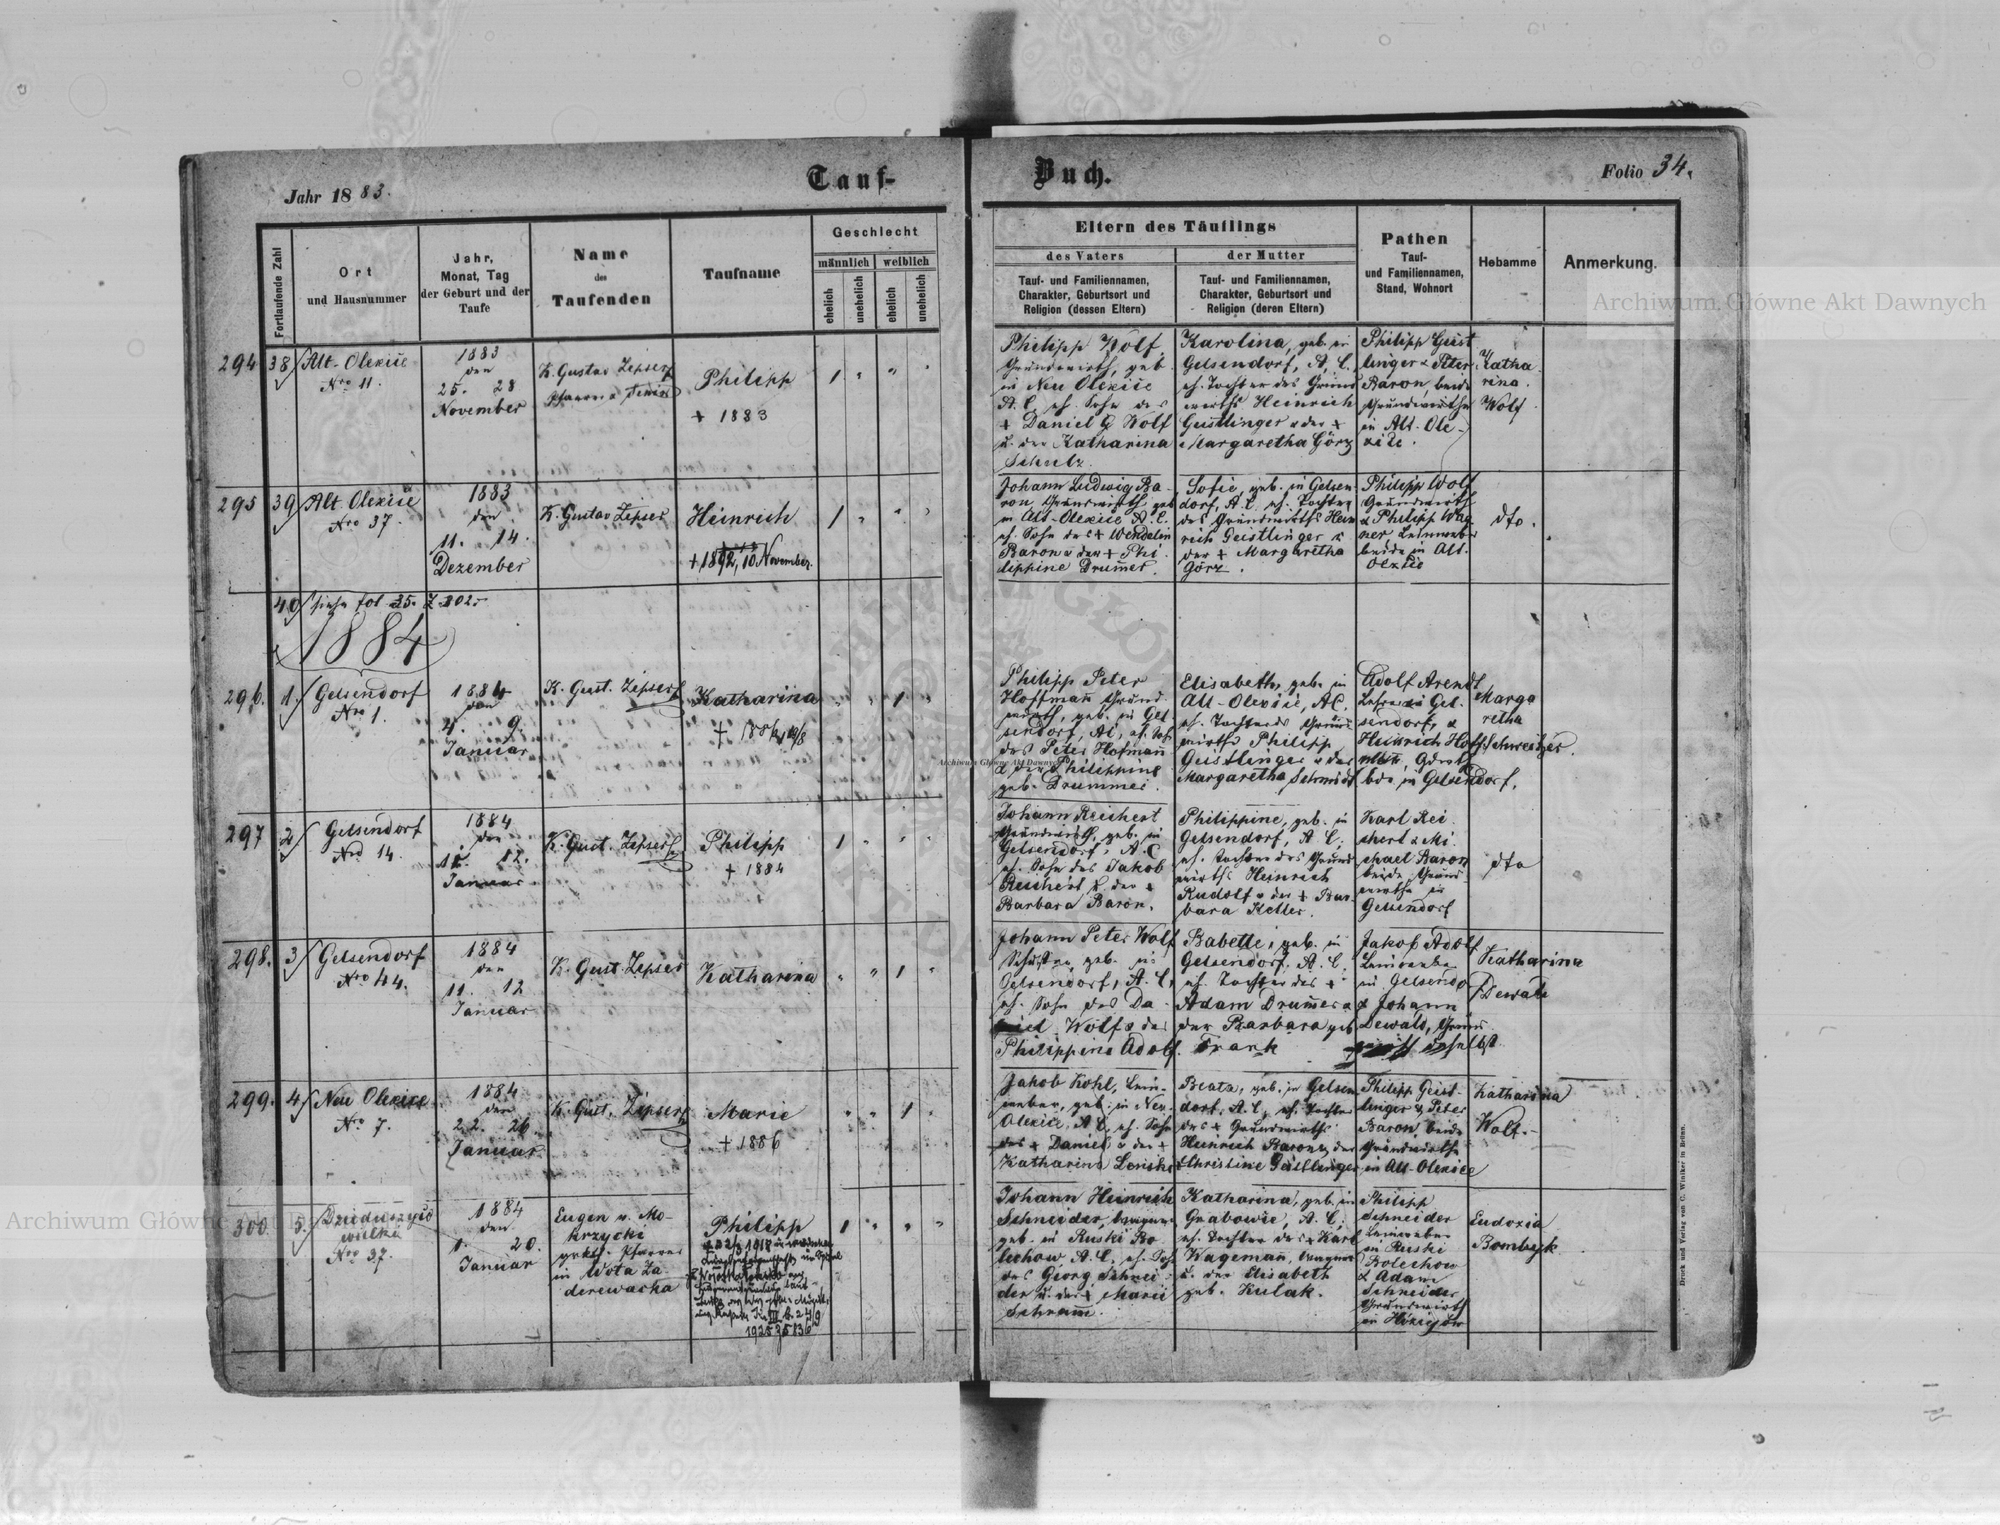 Jahr 1883.
Tauf-
Buch.
Folio 34.
Fortlaufende Zahl
Ort
und Hausnummer
Jahr,
Monat, Tag
der Geburt und der
Taufe
Name
des
Taufenden
Taufname
Geschlecht
männlich
weiblich
ehelich
unehelich
ehelich
unehelich
Eltern des Täuflings
des Vaters
Tauf- und Familiennamen,
Charakter, Geburtsort und
Religion (dessen Eltern)
der Mutter
Tauf- und Familiennamen,
Charakter, Geburtsort und
Religion (deren Eltern)
Pathen
Tauf-
und Familiennamen,
Stand, Wohnort
Hebamme
Anmerkung.
294 38
Alt-Olexice
Nro 11.
1883
den
25. 28
November
K. Gustav Zipser
Philipp
+ 1883
1 " " "
Philipp Wolf,
Grundwirth, geb.
in Neu Olexice
A. C. eh. Sohn des
+ Daniel Wolf
u. der Katharina
Schatz.
Karolina, geb. in
Gelsendorf, A. C.
eh. Tochter des Grund
wirths Heinrich
Geistlinger u der +
Margaretha Görz
Philipp Geist
linger & Peter
Baron, beide
Grundwirthe
in Alt-Ole-
xice.
Katha
rina
Wolf
295 39
Alt Olexice
Nro 37.
1883
den
11. 14.
Dezember
K. Gustav Zipser
Heinrich
+ 1892, 10 November.
1 " " "
Johann Ludwig Ba-
ron Grundwirth, geb
in Alt-Olexice A. C.
eh. Sohn des + Wendelin
Baron u der + Phi-
lippine Drum̄er.
Sofie, geb. in Gelsen-
dorf, A. C. eh. Tochter
des Grundwirths Hein
rich Geistlinger u
der + Margaretha
Görz.
Philipp Wolf
Grundwirth
& Philipp Wag-
ner, Leinweber
beide in Alt-
Olexice
dto.
40 siehe fol 35. Z. 302.
1884
296. 1.
Gelsendorf
Nro 1.
1884
den
4. 9.
Januar
K. Gust. Zipser
Katharina
" " 1 "
Philipp Peter
Hoffman̄ Grund
wirth, geb. in Gel-
sendorf, AC, eh. Sohn
des Peter Hofman̄
& der Philippine
geb. Drummer.
Elisabeth, geb. in
Alt-Olexice, AC.
eh. Tochter des Grund
wirths Philipp
Geistlinger u der
Margaretha Schmidt
Adolf Arendt
Lehrer in Gel-
sendorf, &
Heinrich Hoff
bde in Gelsendorf.
Marga
retha
Schweitzer.
297 2
Gelsendorf
Nro 14.
1884
den
12.
Januar
K. Gust. Zipser
Philipp
+ 1884
1 " " "
Johann Reichert
Grundwirth, geb. in
Gelsendorf, A. C
eh. Sohn des Jakob
Reichert & der +
Barbara Baron.
Philippine, geb. in
Gelsendorf, A. C.
eh. Tochter des Grund
wirths Heinrich
Rudolf u der + Bar-
bara Keller.
Karl Rei-
chert & Mi-
chael Baron
beide Grund-
wirthe in
Gelsendorf
dto
298. 3
Gelsendorf
Nro 44.
1884
den
11. 12
Januar
K. Gust. Zipser
Katharina
" " 1 "
Johann Peter Wolf
Schuster, geb. in
Gelsendorf, A. C,
eh. Sohn des Da-
niel Wolf & der
Philippine Adolf.
Babette, geb. in
Gelsendorf, A. C.
eh. Tochter des +
Adam Drum̄er &
der Barbara geb
Frank
Jakob Adolf
Leinweber
in Gelsendo
& Johann
Dewald, Grund
wirth daselbst
Katharina
Dewald
299. 4
Neu Olexice
Nro 7.
1884
den
22. 26.
Januar
K. Gust. Zipser
Marie
+ 1886
" " 1 "
Jakob Kohl, Lein-
weber, geb. in Neu-
Olexice, A C, eh. Sohn
des + Daniel u der +
Katharina
Beata, geb. in Gelsen
dorf, A. C, eh. Tochter
des + Grundwirths
Heinrich Baron & der
Christine Geistlinger
Philipp Geist-
linger & Peter
Baron, beide
Grundwirthe
in Alt-Olexice
Katharina
Wolf.
300. 5.
Dzieduszyce
wielkie
Nro 37.
1884
den
1. 20.
Januar
Eugen v. Mo-
krzycki
grkth. Pfarrer
in Wola Za-
derewacka
Philipp
1 " " "
Johann Heinrich
Schneider,
geb. in Ruski Bo-
lechow A. C, eh. Sohn
des Georg Schnei-
der u. der + Marie
Schramm.
Katharina, geb. in
Grabowie, A. C,
eh. Tochter des + Karl
Wageman̄,
u. der Elisabeth
geb. Kulak.
Philipp
Schneider
Leinweber
in Ruski
Bolechow
& Adam
Schneider
Grundwirth
in
Eudoxia
Bombyk
Druck und Verlag von C. Winiker in Brünn.
Archiwum Główne Akt Dawnych
Archiwum Główne Akt Dawnych
Archiwum Główne Akt